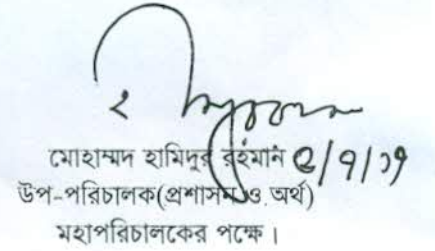 মোহাম্মদ হামিদুর রহমান ৫/৭/১৭
উপ-পরিচালক(প্রশাসন ও অর্থ)
মহাপরিচালকের পক্ষে।